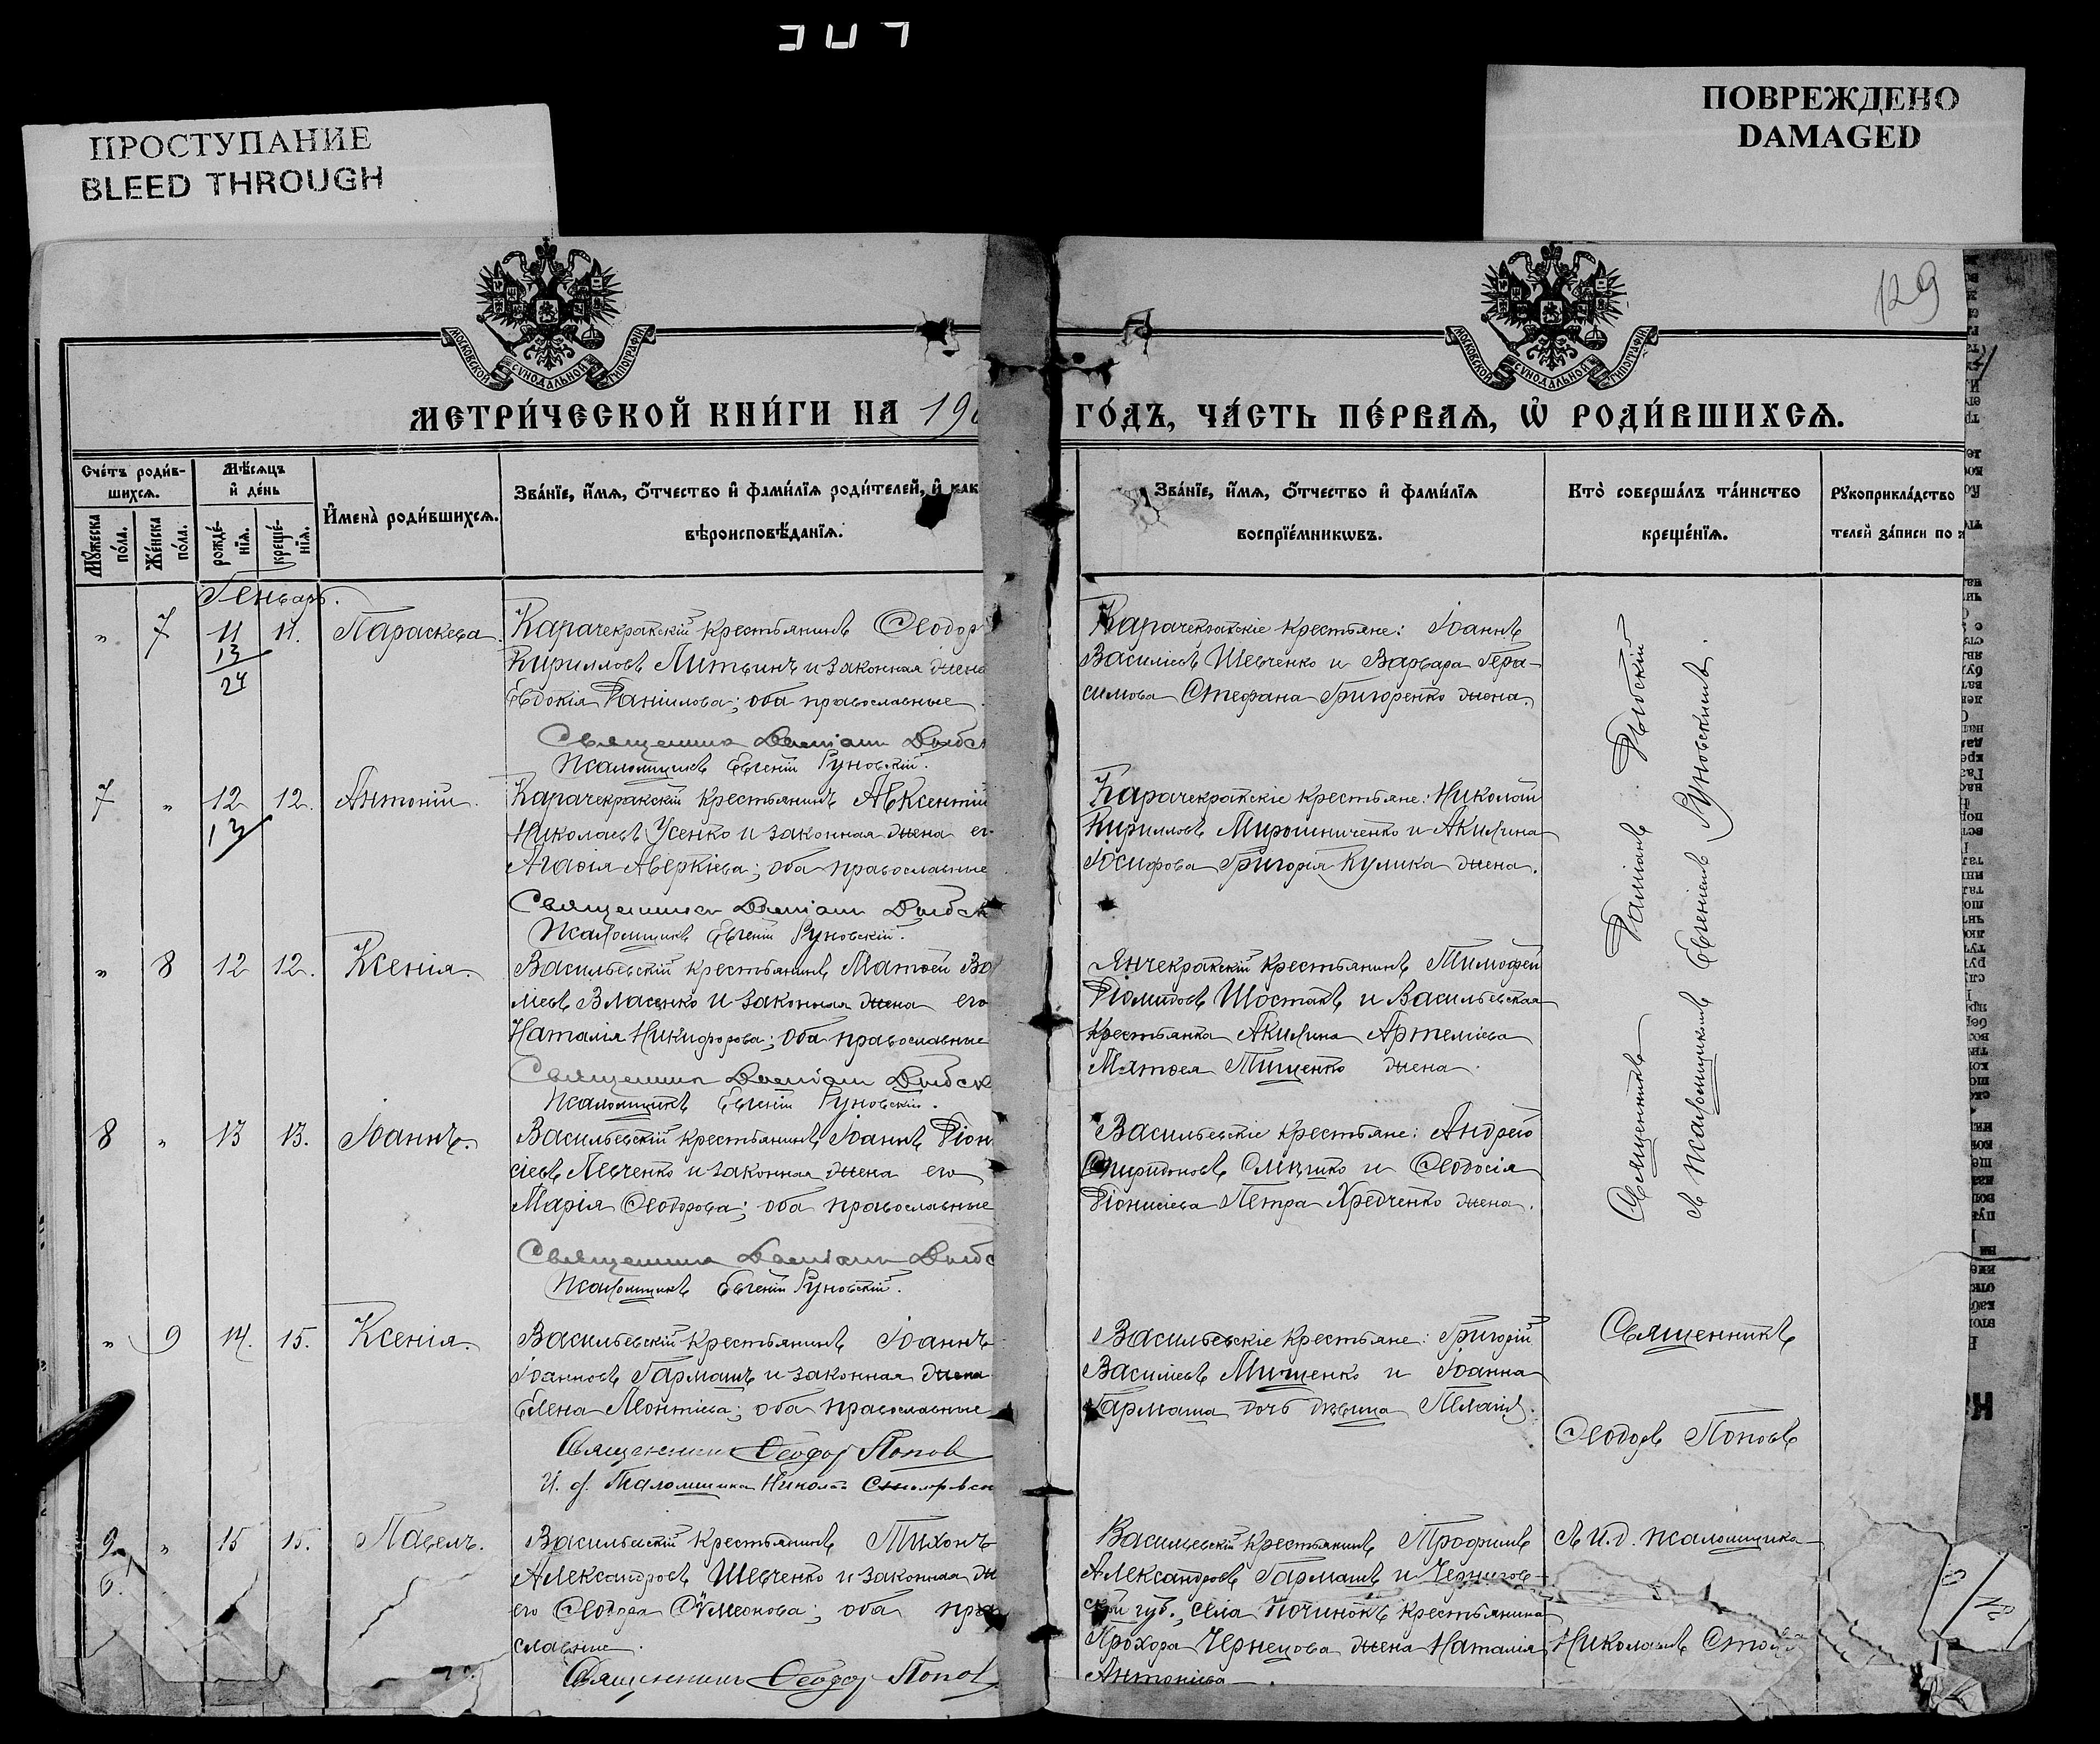 ПРОСТУПАНИЕ
BLEED THROUGH
ПОВРЕЖДЕНО
DAMAGED
129
МОСКОВСКОЙ СѴНОДАЛЬНОЙ ТИПОГРАФІИ
МОСКОВСКОЙ СѴНОДАЛЬНОЙ ТИПОГРАФІИ
МЕТРИ́ЧЕСКОЙ КНИ́ГИ НА 190
ГО́ДЪ, ЧА́СТЬ ПЕ́РВАѦ, Ѡ҆ РОДИ́ВШИХСѦ.
Сче́тъ роди́в-
шихсѧ.
Мꙋ́жеска по́ла.
Же́нска по́ла.
Мѣ́сѧцъ
и҆ де́нь
рожде́-нїѧ.
креще́-нїѧ.
И҆мена̀ роди́вшихсѧ.
Зва́нїе, и҆́мѧ, ѻ҆́тчество и҆ фами́лїѧ роди́телей, и҆ как
вѣроисповѣ́данїѧ.
Зва́нїе, и҆́мѧ, ѻ҆́тчество и҆ фами́лїѧ
воспрїе́мникѡвъ.
Кто̀ соверша́лъ та́инство
креще́нїѧ.
Рꙋкоприкла́дство
телей за́писи по
Генварь.
" 7 11 11. Параскева.
13
24
Карачекракскій крестьянинъ Ѳеодор
Кирилловъ Литвинъ и законная жена
Евдокія Даніилова; оба православные
Священник Дамиан Дыбск
Псаломщикъ Евгеній Руновскій.
Карачекракскіе крестьяне: Іоаннъ
Василіевъ Шевченко и Варвара Гера-
симова Стефана Григоренко жена.
7 " 12 12. Антоній.
13
Карачекракскій крестьянинъ Авксентій
Николаевъ Усенко и законная жена ег
Агаѳія Аверкіева; оба православные
Священник Дамиан Дыбск
Псаломщикъ Евгеній Руновскій.
Карачекракскіе крестьяне: Николай
Кирилловъ Мирошниченко и Акилина
Іосифова Григорія Кулика жена.
" 8 12 12. Ксенія.
Васильевскій крестьянинъ Матѳей Ва
ліевъ Власенко и законная жена его
Наталія Никифорова; оба православные
Священник Дамиан Дыбск
Псаломщикъ Евгеній Руновскій.
Янчекракскій крестьянинъ Тимофей
Діомидовъ Шостакъ и Васильевская
крестьянка Акилина Артеміева
Матѳея Тищенко жена.
8 " 13 13. Іоаннъ.
Васильевскій крестьянинъ Іоаннъ Діон
сіевъ Левченко и законная жена его
Марія Ѳеодорова; оба православные
Священник Дамиан Дыбс
Псаломщикъ Евгеній Руновскій.
Васильевскіе крестьяне: Андрей
Спиридоновъ и Ѳеодосія
Діонисіева Петра Хредченко жена.
Священникъ Даміанъ Дыбскій
и псаломщикъ Евгеній Руновскій.
" 9 14. 15. Ксенія.
Васильевскій крестьянинъ Іоаннъ
Іоанновъ Гармашъ и законная жена
Елена Леонтіева; оба православные
Священник Ѳеодор Попов
И. д. Псаломщика Николай
Васильевскіе крестьяне: Григорій
Василіевъ Мищенко и Іоанна
Гармаша дочь дѣвица Пелагія.
Священникъ
Ѳеодоръ Поповъ
9 " 15 15. Павелъ.
6.
Васильевскій крестьянинъ Тихонъ
Александровъ Шевченко и законная ж
его Ѳеодора Сѵмеонова; оба пра
славные.
Священникъ Ѳеодор Попов
Васильевскій крестьянинъ Трофимъ
Александровъ Гармашъ и Чернигов-
ской губ., села Починокъ крестьянина
Прохора Чернецова жена Наталія
Антоніева.
и И. д. псаломщика
Николай